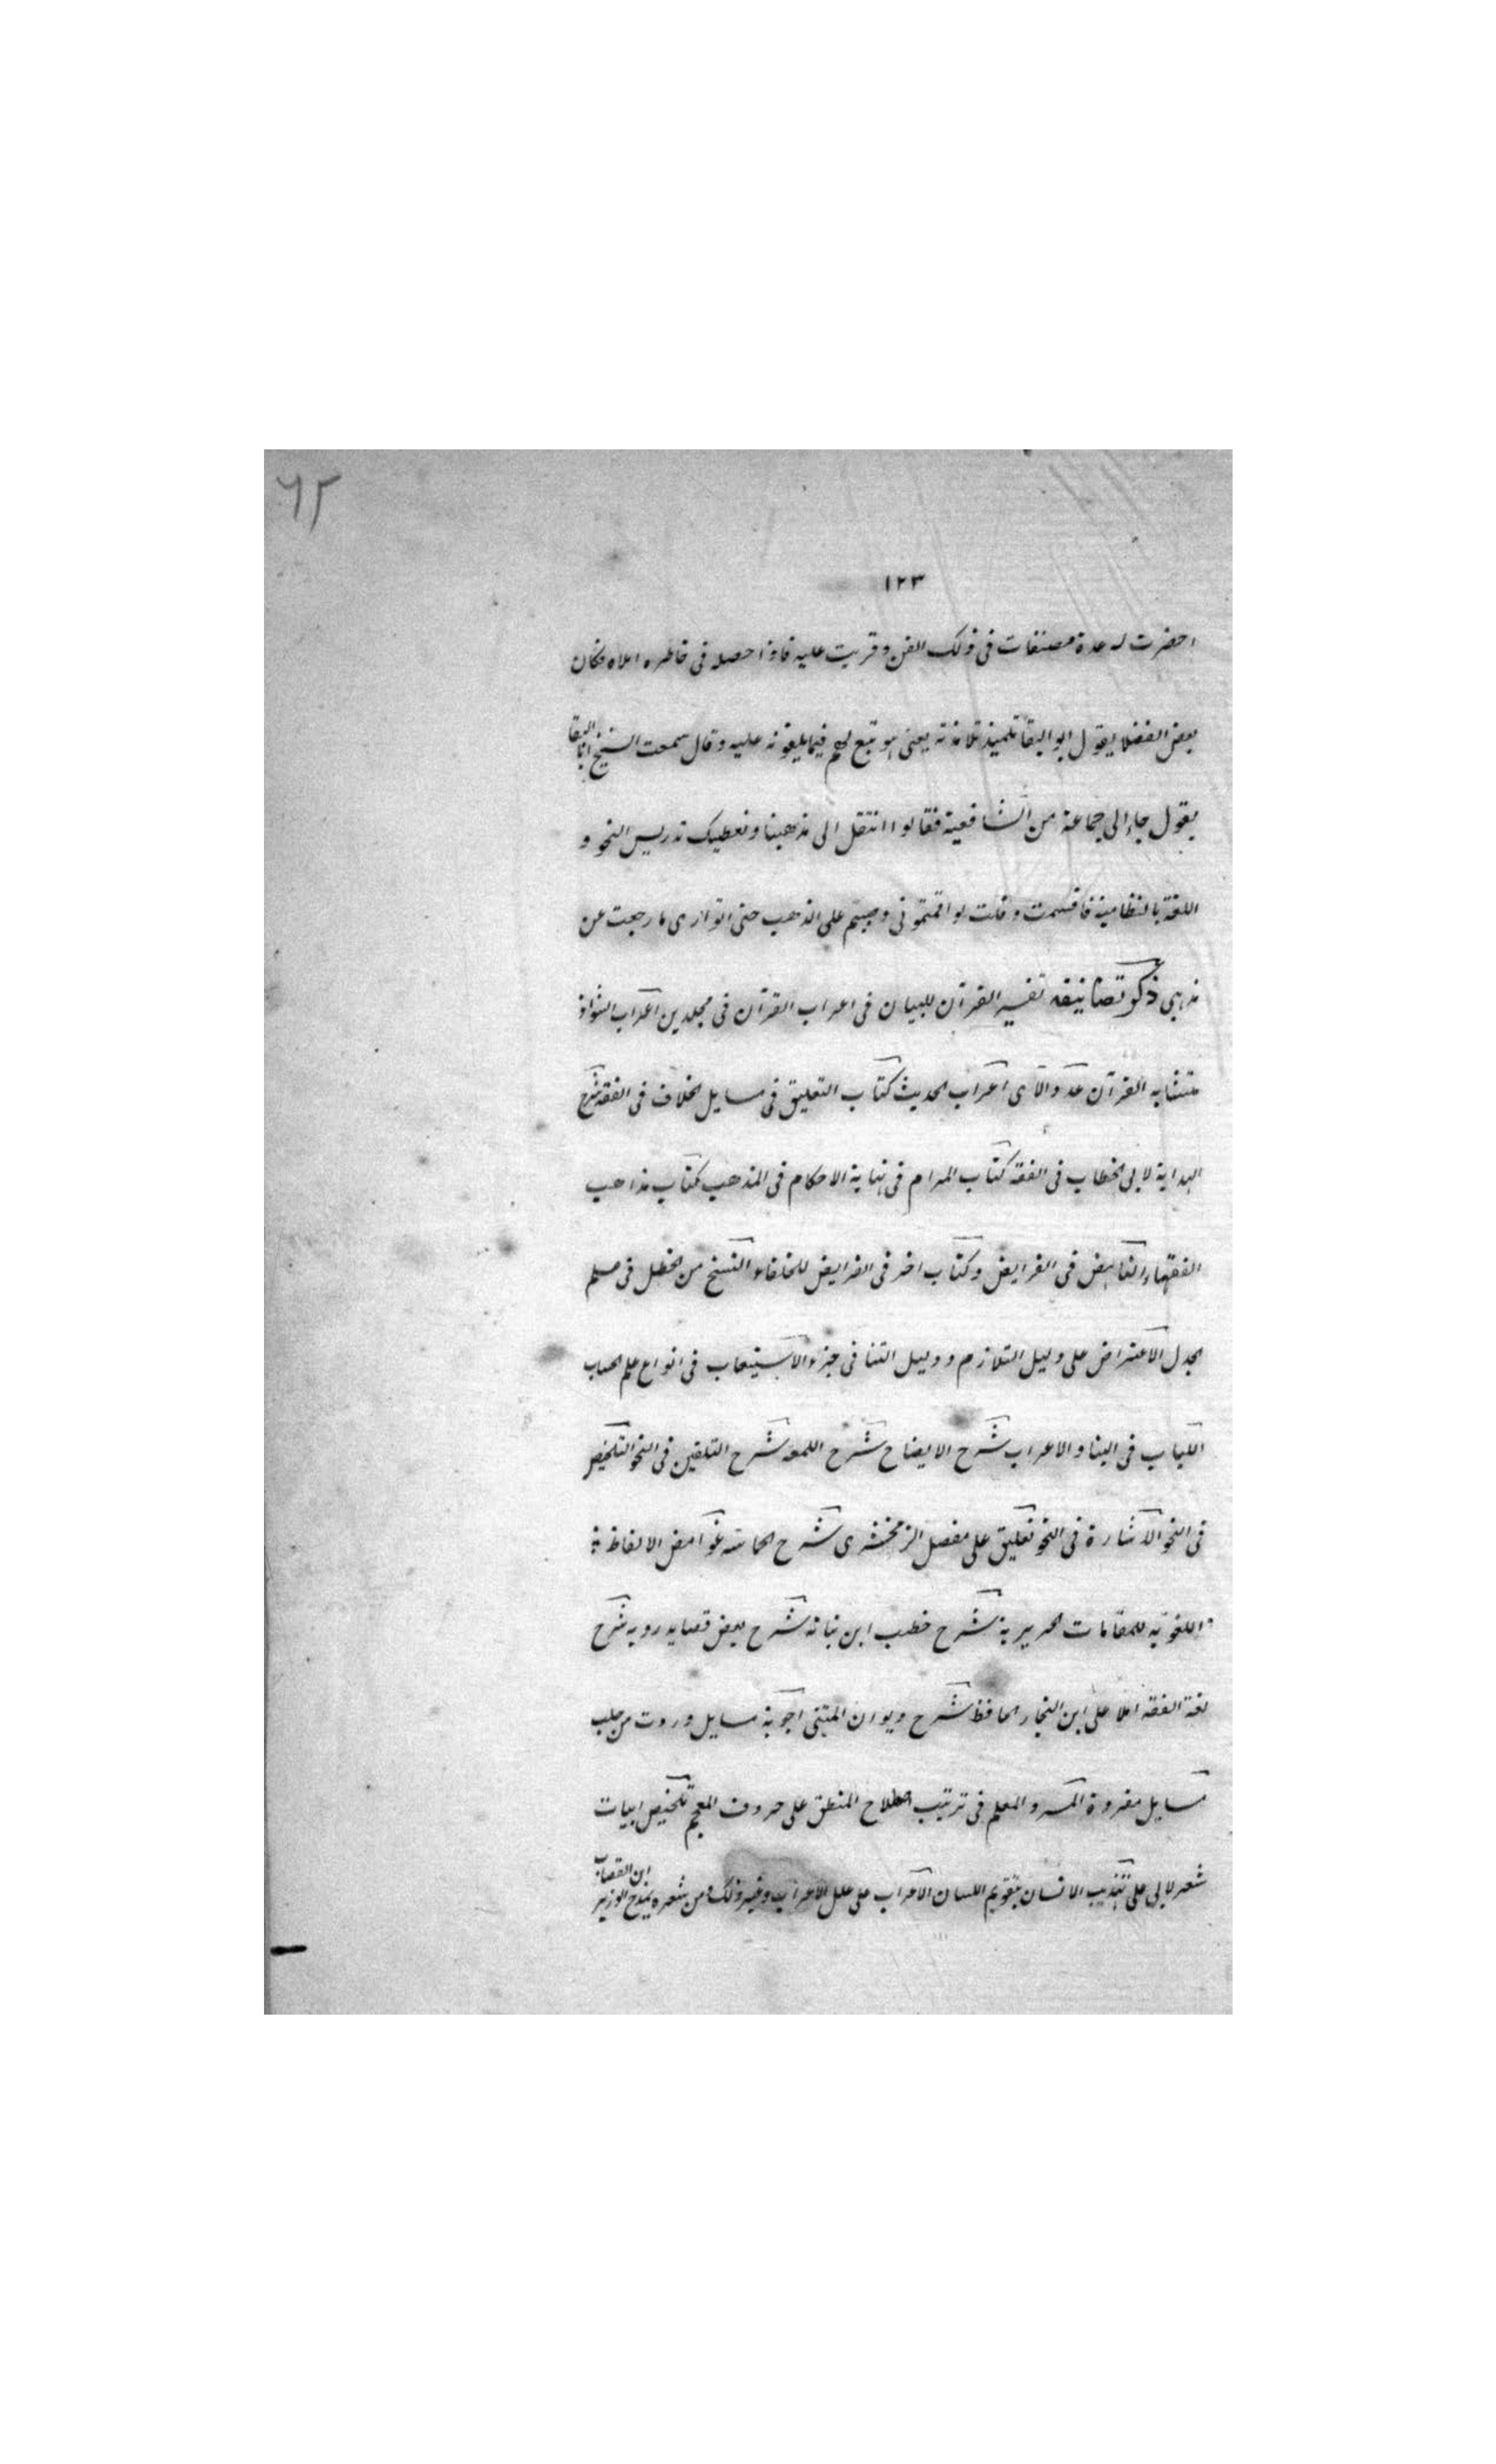 ٦٢
١٢٣
احضرت له عدة مصنفات فى ذلك الفن وقريت عليه فاذا حصله فى خاطره املاه فكان
بعض الفضلا يقول ابو البقا تلميذ تلامذته يعنى هو تبع لهم فيما يلقونه عليه وقال سمعت الشيخ ابا البقا
يقول جاء الى جماعة من الشافعية فقالوا انتقل الى مذهبنا ونعطيك تدريس النحو و
اللغة بالنظامية فاقسمت وقلت لو اقمتمونى وصببتم على الذهب حتى اتوارى ما رجعت عن
مذهبى ذكر تصانيفه تفسير القرآن البيان فى اعراب القرآن فى مجلدين اعراب الشواذ
متشابه القرآن عدد الآى اعراب الحديث كتاب التعليق فى مسايل الخلاف فى الفقه شرح
الهداية لابى الخطاب فى الفقه كتاب المرام فى نهاية الاحكام فى المذهب كتاب مذاهب
الفقهاء الناهض فى الفرايض وكتاب اخر فى الفرايض للخلفاء المنقح من الخطل فى علم
الجدل الاعتراض على دليل التلازم ودليل التنافى جزء الاستيعاب فى انواع علم الحساب
اللباب فى البنا والاعراب شرح الايضاح شرح اللمعه شرح التلقين فى النحو التلخيص
فى النحو الاشارة فى النحو تعليق على مفصل الزمخشرى شرح الحماسه غوامض الالفاظ
اللغويه للمقامات الحريرية شرح خطب ابن نباته شرح بعض قصايد روبه شرح
لغة الفقه املا على ابن النجار الحافظ شرح ديوان المتنبى اجوبة مسايل وردت من حلب
مسايل مفردة المشوف المعلم فى ترتيب اصلاح المنطق على حروف المعجم تلخيص ابيات
شعر لابى على تهذيب الانسان بتقويم اللسان الاعراب على علل الاعراب وغير ذلك ومن شعره يمدح الوزير ابن القصاب